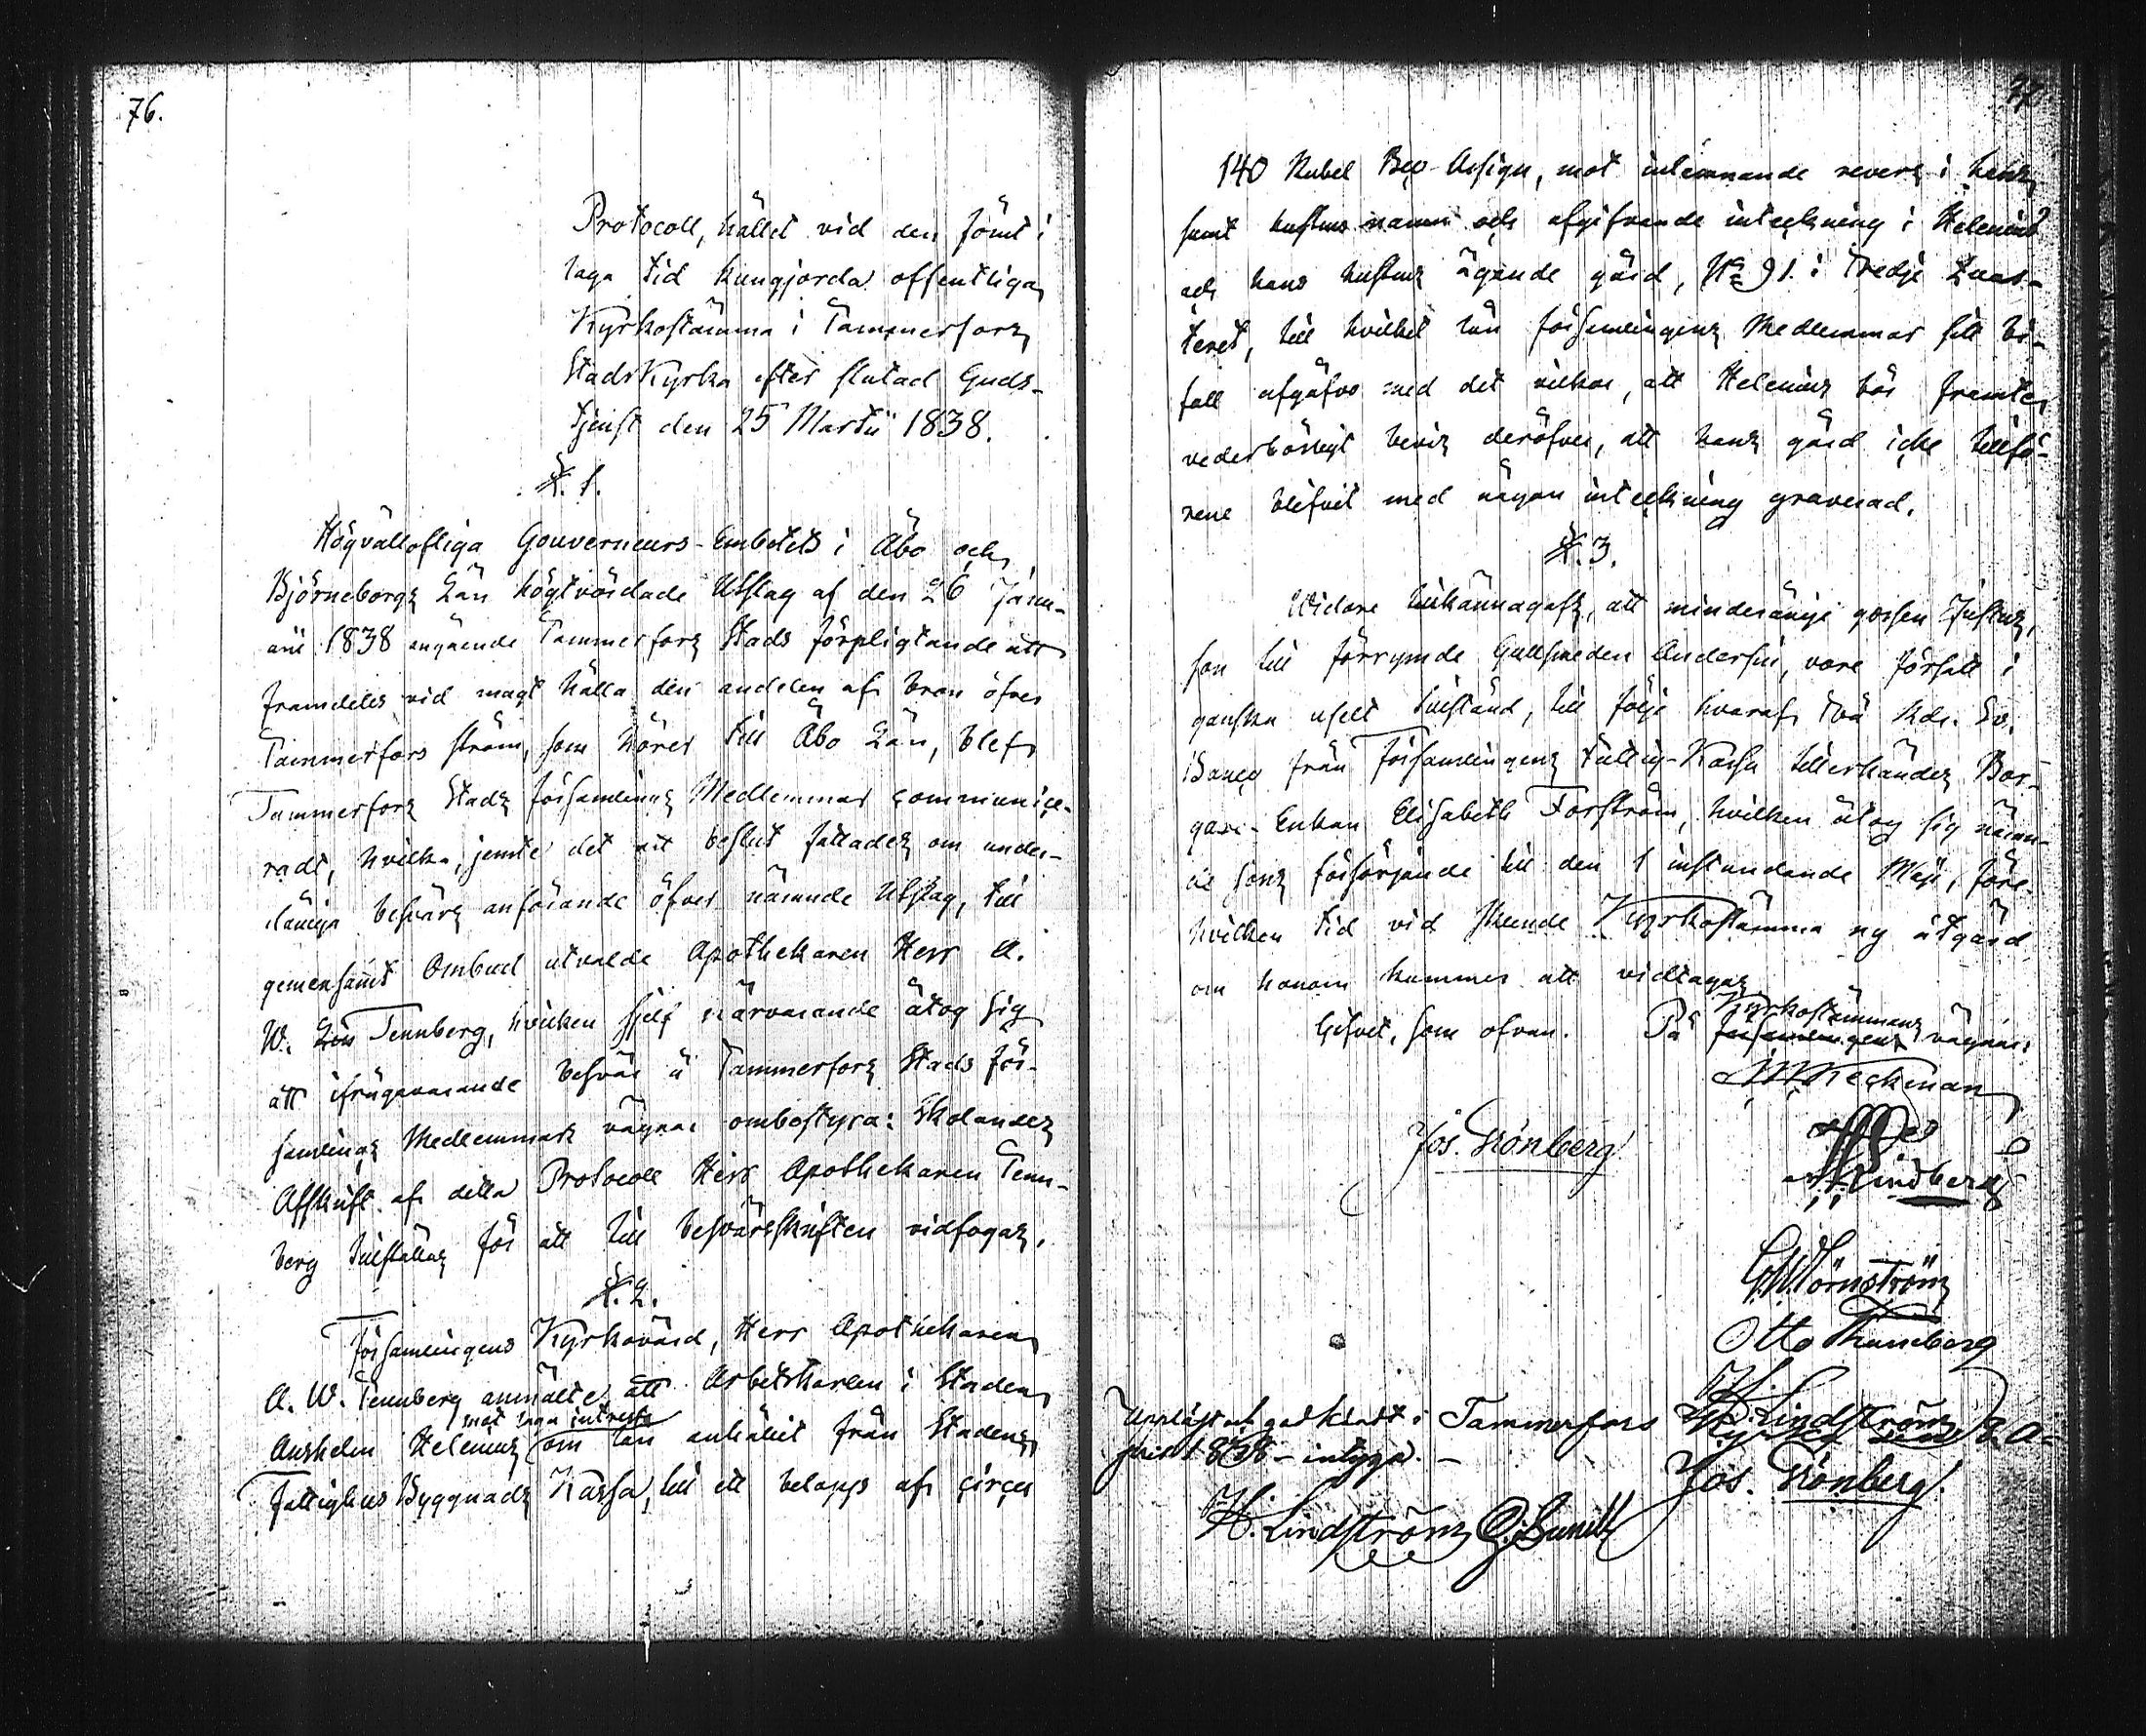 76.
Protocoll, hållet vid den jämt i
laga tid kungjorda offentliga
Kyrkostämma i Tammerfors
Stads Kyrka efter slutad Guds-
tjenst den 25 Martii 1838.
§. 1.
Högvällofliga Gouverneurs-Embetets i Åbo och
Björneborgs Län högtvördade Utslag af den 26 Janu-
arii 1838 angående Tammerfors Stads förpligtande att
framdeles vid magt hålla den andelen af bron öfver
Tammerfors ström, som hörer till Åbo Län, blef
Tammerfors Stads församlings Medlemmar communice-
radt, hvilka, jemte det att beslut fattades om under-
dåniga besvärs anförande öfver nämnde Utslag, till
gemensamt Ombud utvalde Apothekaren Herr A.
W. Tennberg, hvilken sjelf närvarande åtog sig
att ifrågavarande besvär å Tammerfors Stads för-
samlings Medlemmars vägnar ombestyra: Skolandes
Afskrift af detta Protocoll Herr Apothekaren Tenn-
berg tillställas för att till besvärsskriften vidfogas.
§. 2.
Församlingens Kyrkovärd, Herr Apothekaren
A. W. Tennberg anmälte, att Arbetskarlen i Staden
mot laga intresse
Anshelm Helenius om lån anhållit från Stadens
Fattighus Byggnads Kassa, till ett belopp af circa
77
140 Rubel Bco Assign, mot inlemnande revers i hans
samt hustrus namn och afgifvande inteckning i Helenius
och hans hustrus ägande gård, No 91. i Tredje Quar-
teret, till hvilket lån församlingens Medlemmar sitt bi-
fall afgåfvo med det vilkor, att Helenius bör framte
vederbörligt bevis deröfver, att hans gård icke tillfö-
rene blifvit med någon inteckning graverad.
§. 3.
Widare tillkännagafs, att minderårige gossen Justus,
son till förrymde Gullsmeden Anderssin, vore försatt i
ganska uselt tillstånd, till följe hvaraf två Rdr. Sv.
Banco från Församlingens Fattig-Kassa tillerkändes Bor-
gare-Enkan Elisabeth Forsström, hvilken åtog sig nämn-
de sons försörjande till den 1 instundande Maji, före
hvilken tid vid skeende Kyrkostämma ny åtgärd
om honom kommer att vidtagas
Gifvet, som ofvan. På Kyrkostämmans
församlingens vägnar
Jos. Grönberg
Lindberg
Törnström
Otto Thuneberg
H. Lindström
Jos. Grönberg.
Uppläst och godkändt i Tammerfors
1838 - intyga. -
H. Lindström